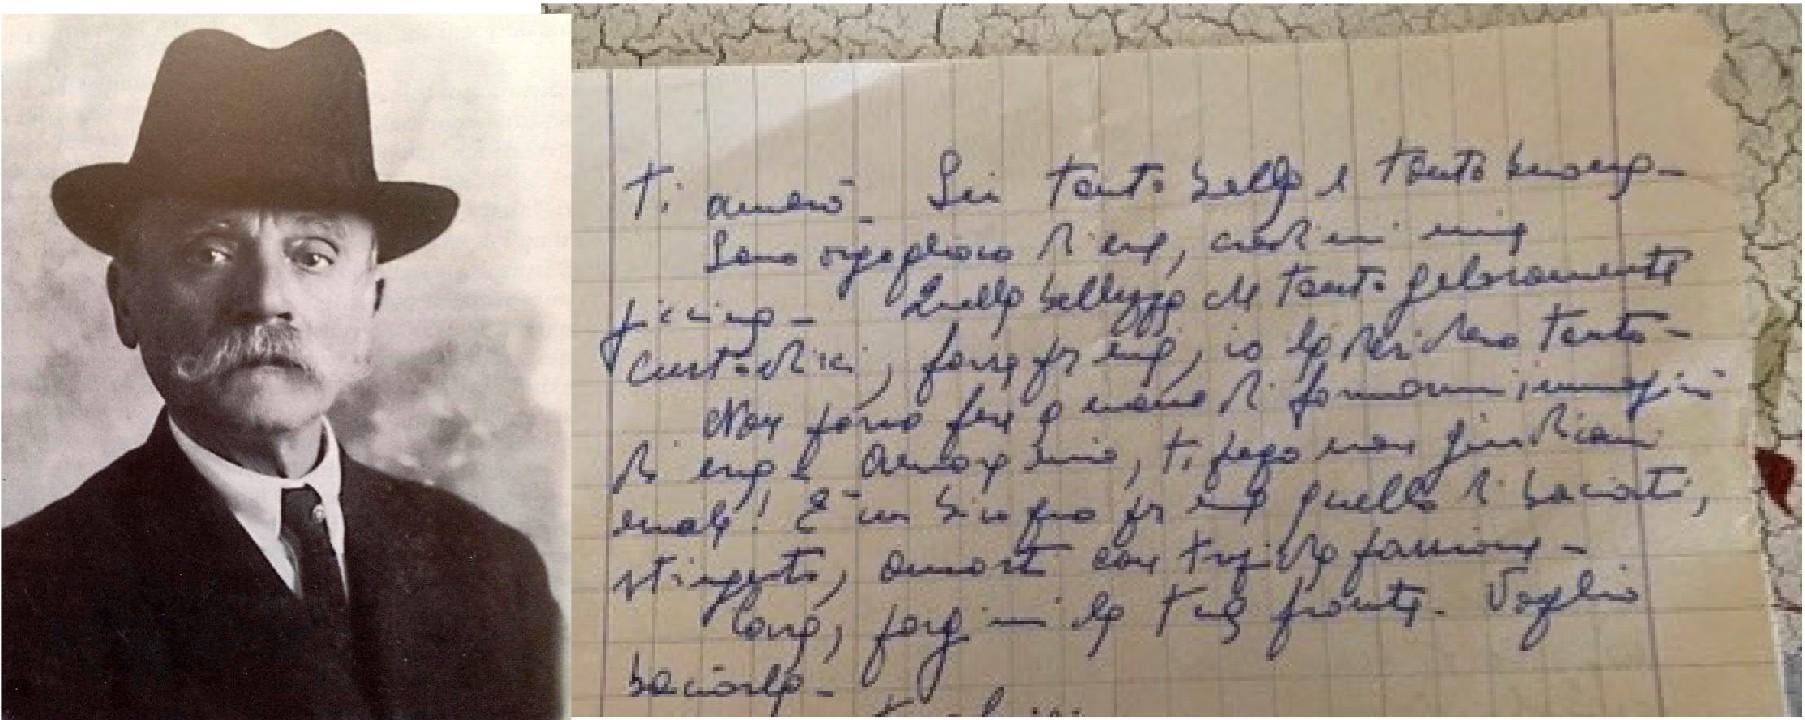 Ti amerò - Sei tanto bella e tanto buona -
Sono orgoglioso di me, credimi mia
piccina - Quella bellezza che tanto gelosamente
custodisci, forse per me, io la desidero tanto -
Non posso fare a meno di formarmi immagini
di Amore mio, ti prego non giudicarmi
male! È un bisogno per me quello di baciarti,
stringerti, amarti con tutta passione -
Cara, porgimi la tua fronte. Voglio
baciarla -